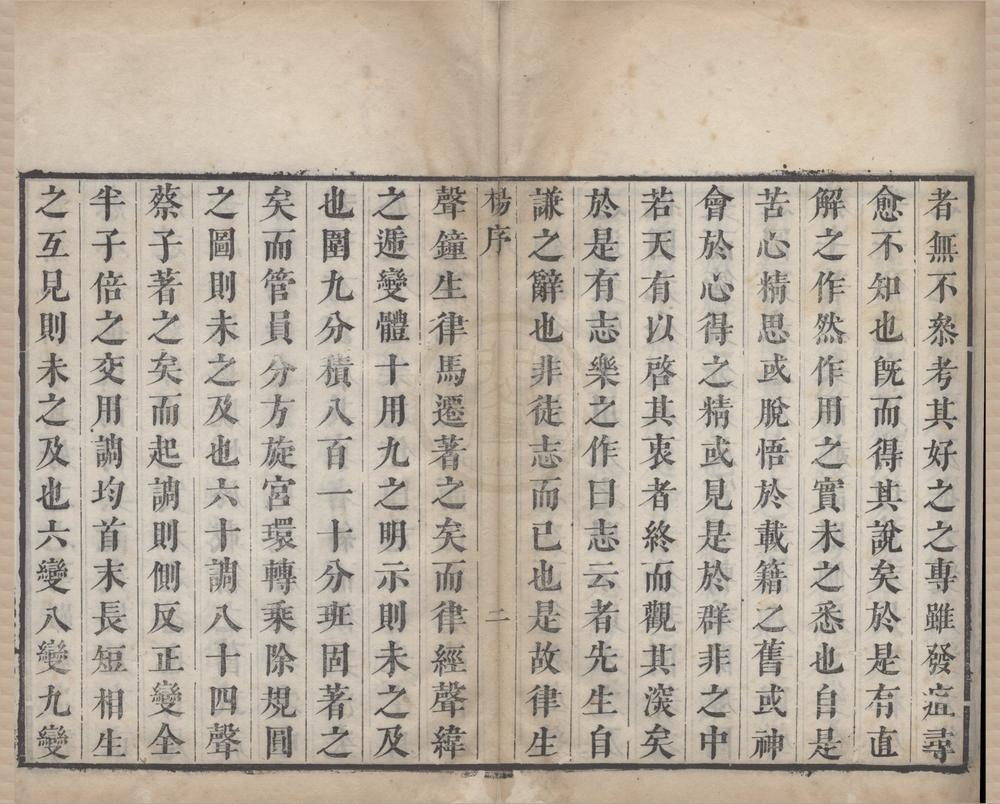 者無不叅考其好之之專雖發疽尋
愈不知也旣而得其說矣於是有直
解之作然作用之實未之悉也自是
苦心精思或脫悟於載籍之舊或神
會於心得之精或見是於群非之中
若天有以啓其衷者終而觀其深矣
於是有志樂之作曰志云者先生自
謙之辭也非徒志而已也是故律生
楊序
二
聲鐘生律馬遷著之矣而律經聲緯
之遞變體十用九之明示則未之及
也圍九分積八百一十分班固著之
矣而管員分方旋宮環轉乘除規圓
之圖則未之及也六十調八十四聲
蔡子著之矣而起調則側反正變全
半子倍之交用調均首末長短相生
之互見則未之及也六變八變九變